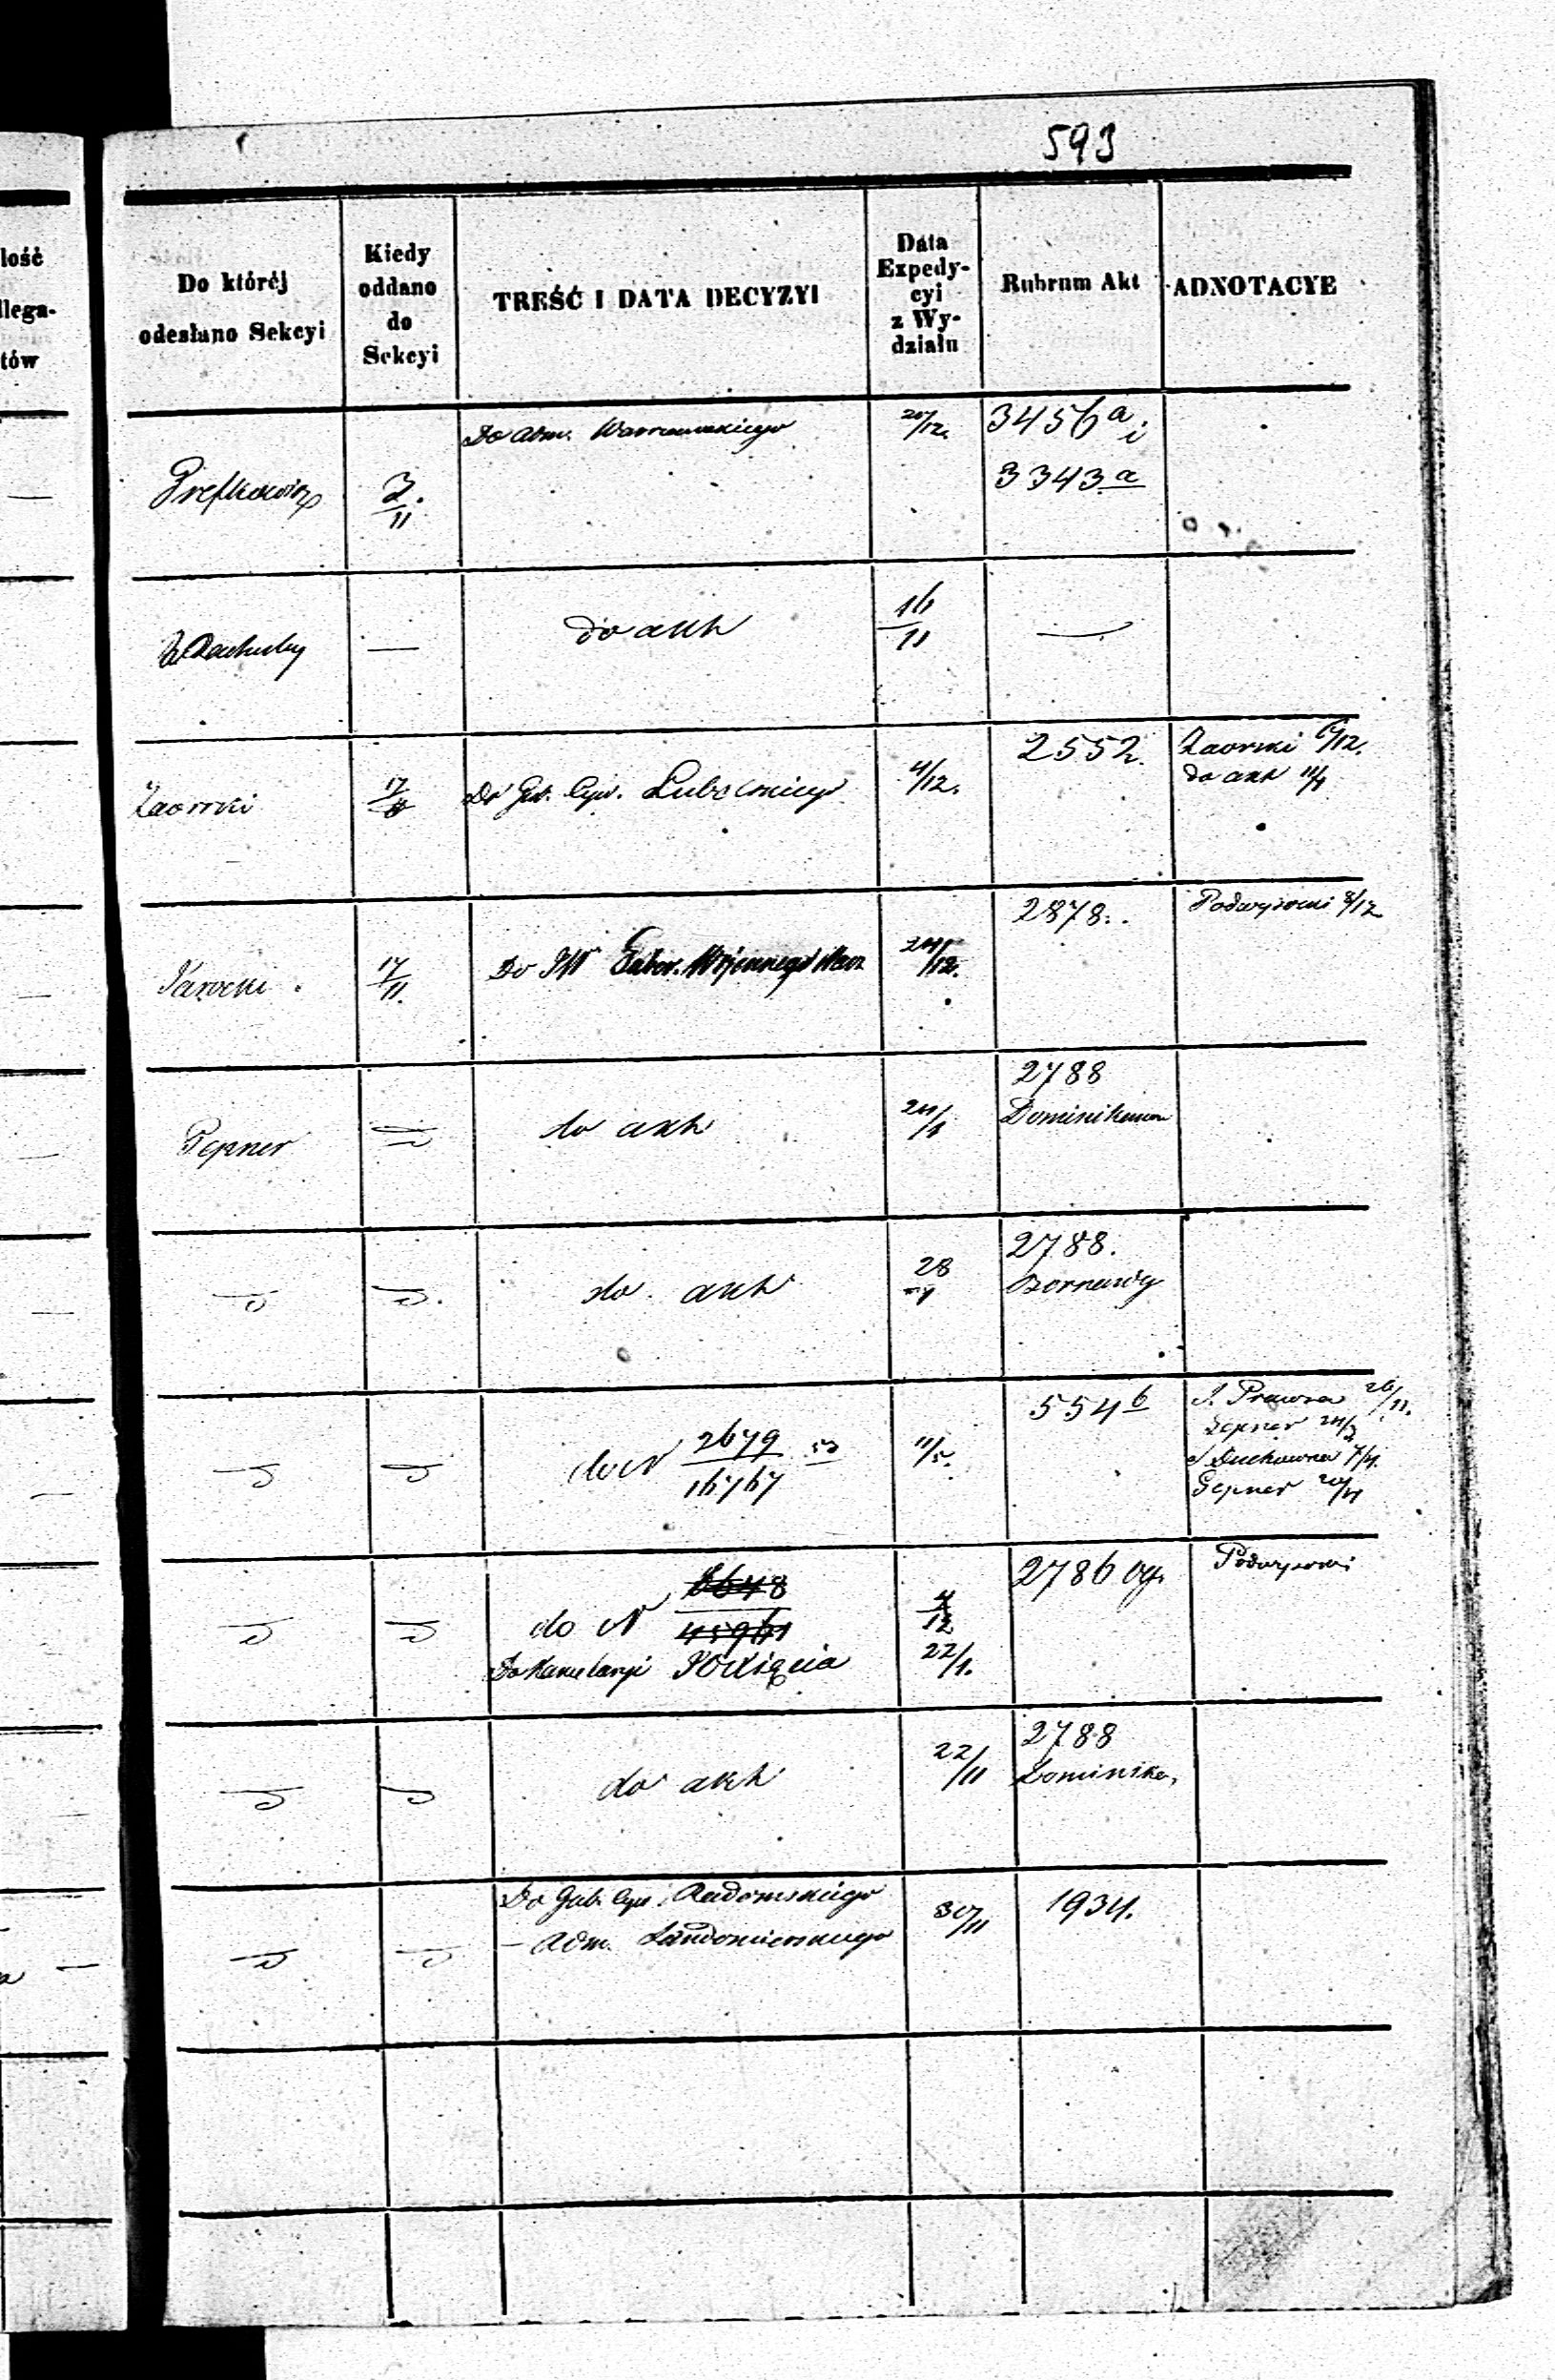 593
lość
dlega-
tów
Do któréj
odesłano Sekcyi
Kiedy
oddano
do
Sekcyi
TREŚĆ I DATA DECYZYI
Data
Expedy-
cyi
z Wy-
działu
Rubrum Akt
ADNOTACYE
Do Adm. Warszawskiego
20/12.
3456 a i
3343 a
3/11
do akt
16/11
—
Zaorski
17/11
Do Gub. Cyw. Lubelskiego
4/12.
2552.
Zaorski 6/12.
do akt 11/4
Jarocki
17/11.
Do JW Gubor. Wojennego Wars
24/12.
2878.
Podwysocki 8/12
Gepner
do akt
24/1
2788
Dominikanow
do akt
28
2788.
do N 2679/16767 53
11/5.
554 b
S. Prawna 26/11.
Gepner 24/3
S Duchowna 7/4.
Gepner 20/4
do N 8648/45961
4/12
Do Kancelaryi JO Xięcia
22/1.
2786 og.
Podwysocki
do akt
22/11
2788
Dominika,
Do Gub. Cyw. Radomskiego
— Adm. Sandomierskiego
30/11
1934.